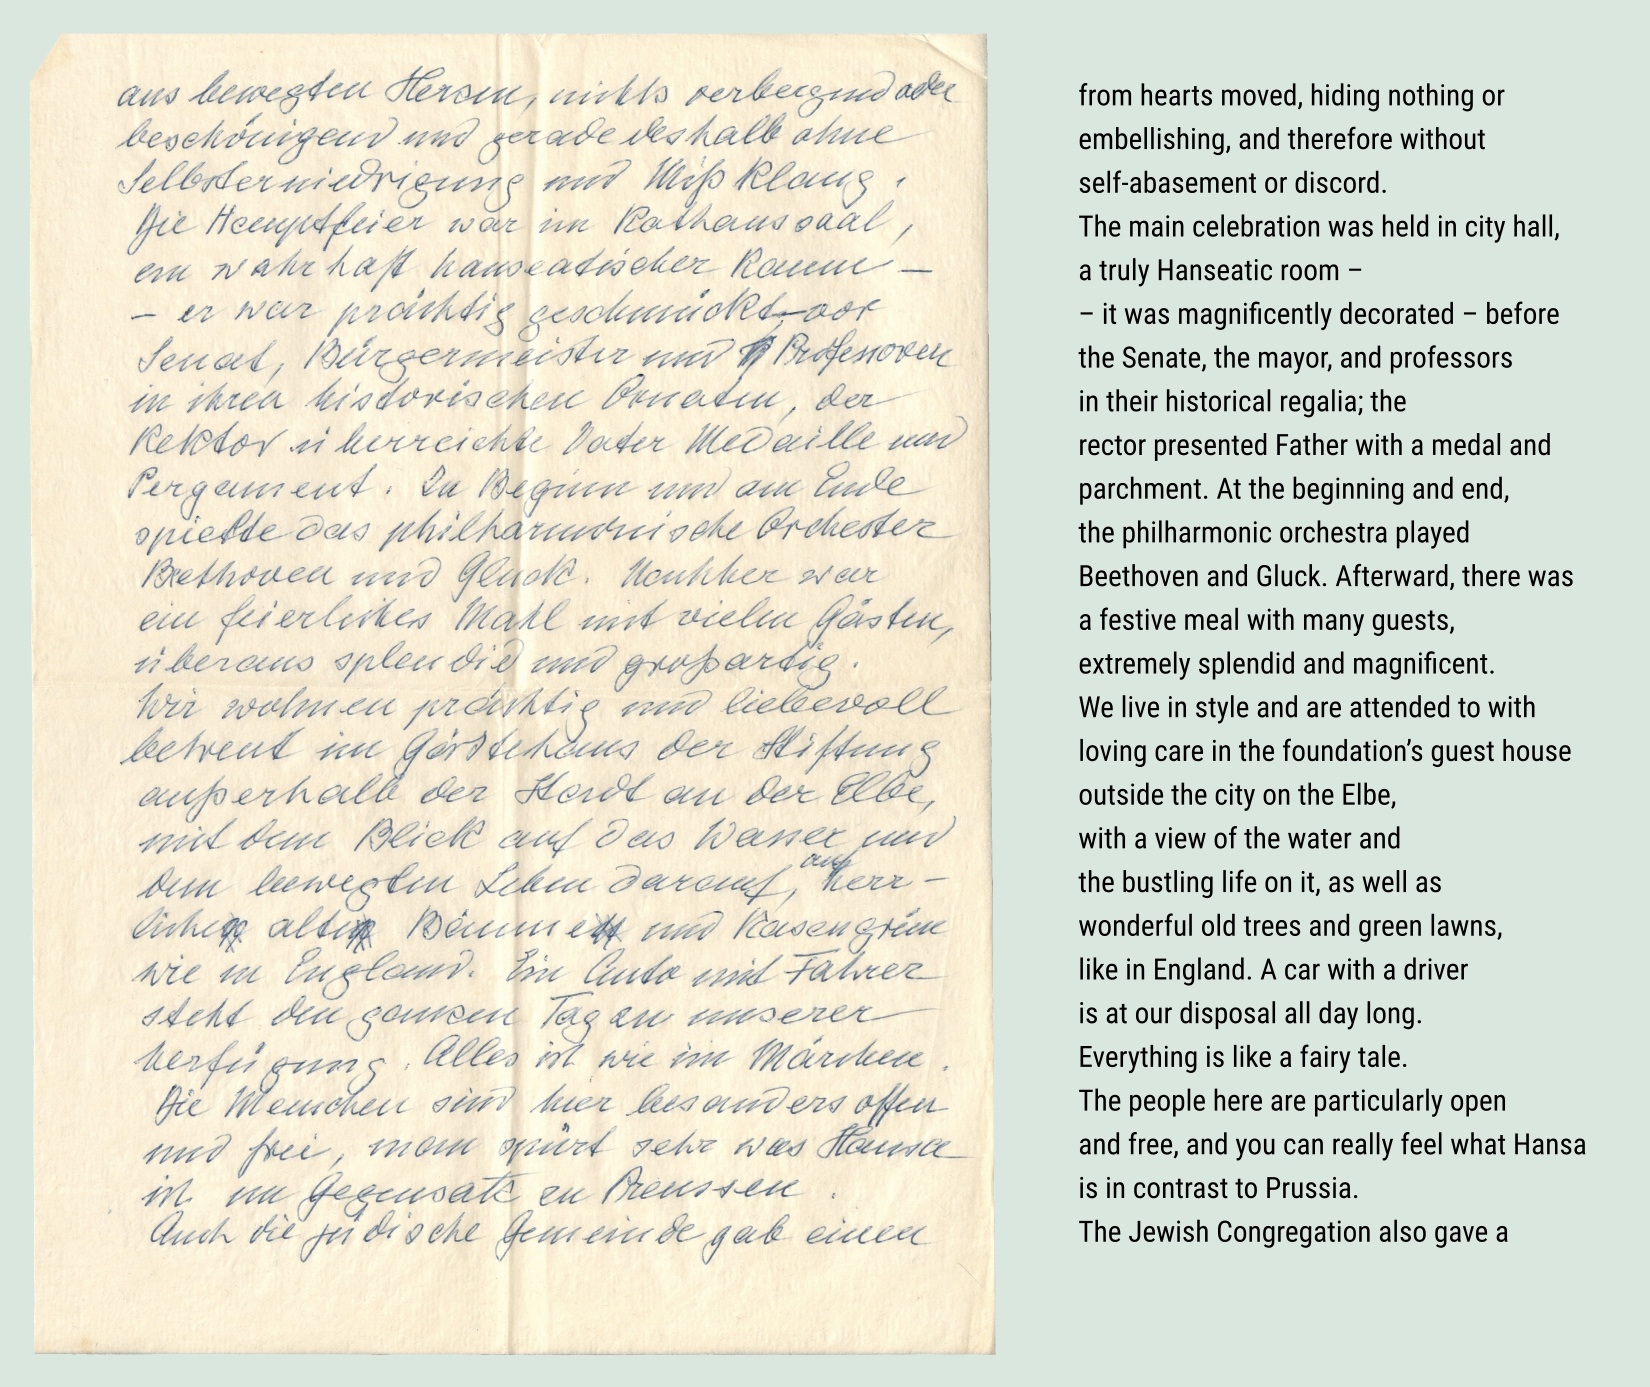 aus bewegten Herzen, nichts verbergend oder
beschönigend und gerade deshalb ohne
Selbsterniedrigung und Mißklang.
Die Hauptfeier war im Rathaussaal,
ein wahrhaft hanseatischer Raum –
– er war prächtig geschmückt – vor
Senat, Bürgermeister und Professoren
in ihren historischen Ornaten, der
Rektor überreichte Vater Medaille und
Pergament. Zu Beginn und am Ende
spielte das philharmonische Orchester
Beethoven und Gluck. Nachher war
ein feierliches Mahl mit vielen Gästen,
überaus splendid und großartig.
Wir wohnen prächtig und liebevoll
betreut im Gästehaus der Stiftung
außerhalb der Stadt an der Elbe,
mit dem Blick auf das Wasser und
dem bewegten Leben darauf, auf herr-
liche alte Bäume und Rasengrün
wie in England. Ein Auto mit Fahrer
steht den ganzen Tag zu unserer
Verfügung. Alles ist wie im Märchen.
Die Menschen sind hier besonders offen
und frei, man spürt sehr was Hansa
ist im Gegensatz zu Preussen.
Auch die jüdische Gemeinde gab einen
from hearts moved, hiding nothing or
embellishing, and therefore without
self-abasement or discord.
The main celebration was held in city hall,
a truly Hanseatic room –
– it was magnificently decorated – before
the Senate, the mayor, and professors
in their historical regalia; the
rector presented Father with a medal and
parchment. At the beginning and end,
the philharmonic orchestra played
Beethoven and Gluck. Afterward, there was
a festive meal with many guests,
extremely splendid and magnificent.
We live in style and are attended to with
loving care in the foundation’s guest house
outside the city on the Elbe,
with a view of the water and
the bustling life on it, as well as
wonderful old trees and green lawns,
like in England. A car with a driver
is at our disposal all day long.
Everything is like a fairy tale.
The people here are particularly open
and free, and you can really feel what Hansa
is in contrast to Prussia.
The Jewish Congregation also gave a